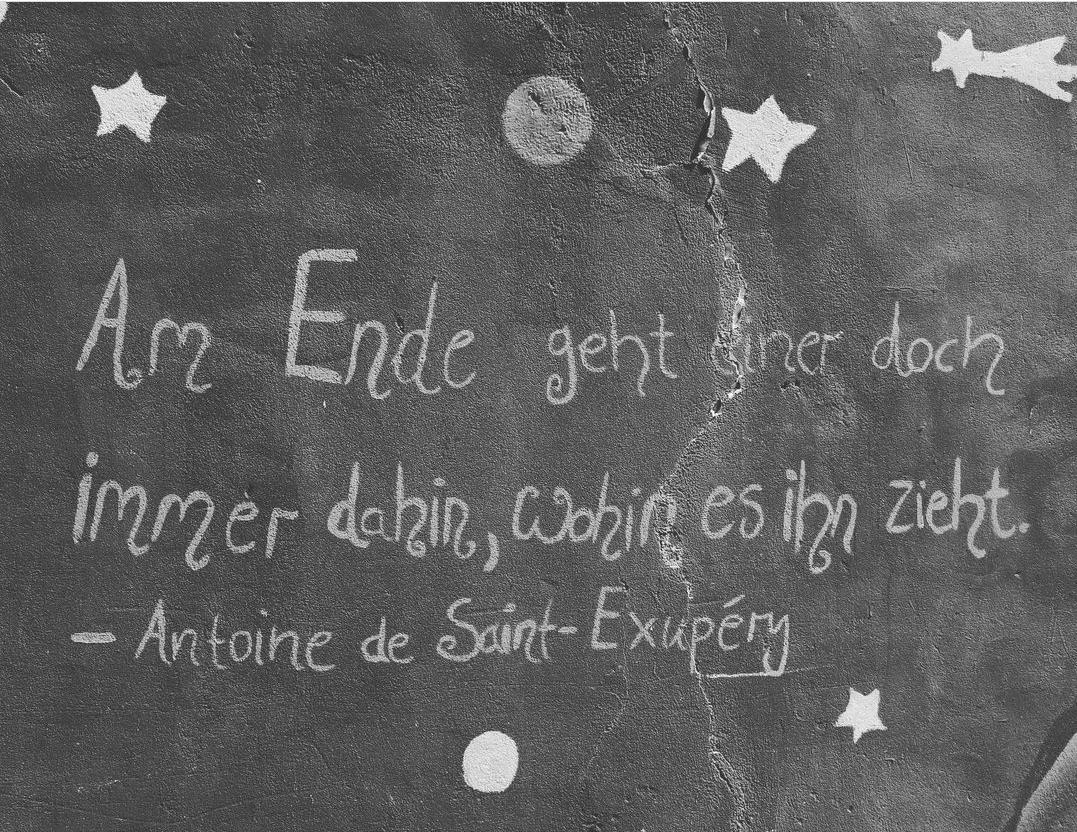 Am Ende geht einer doch
immer dahin, wohin es ihn zieht.
- Antoine de Saint-Exupéry